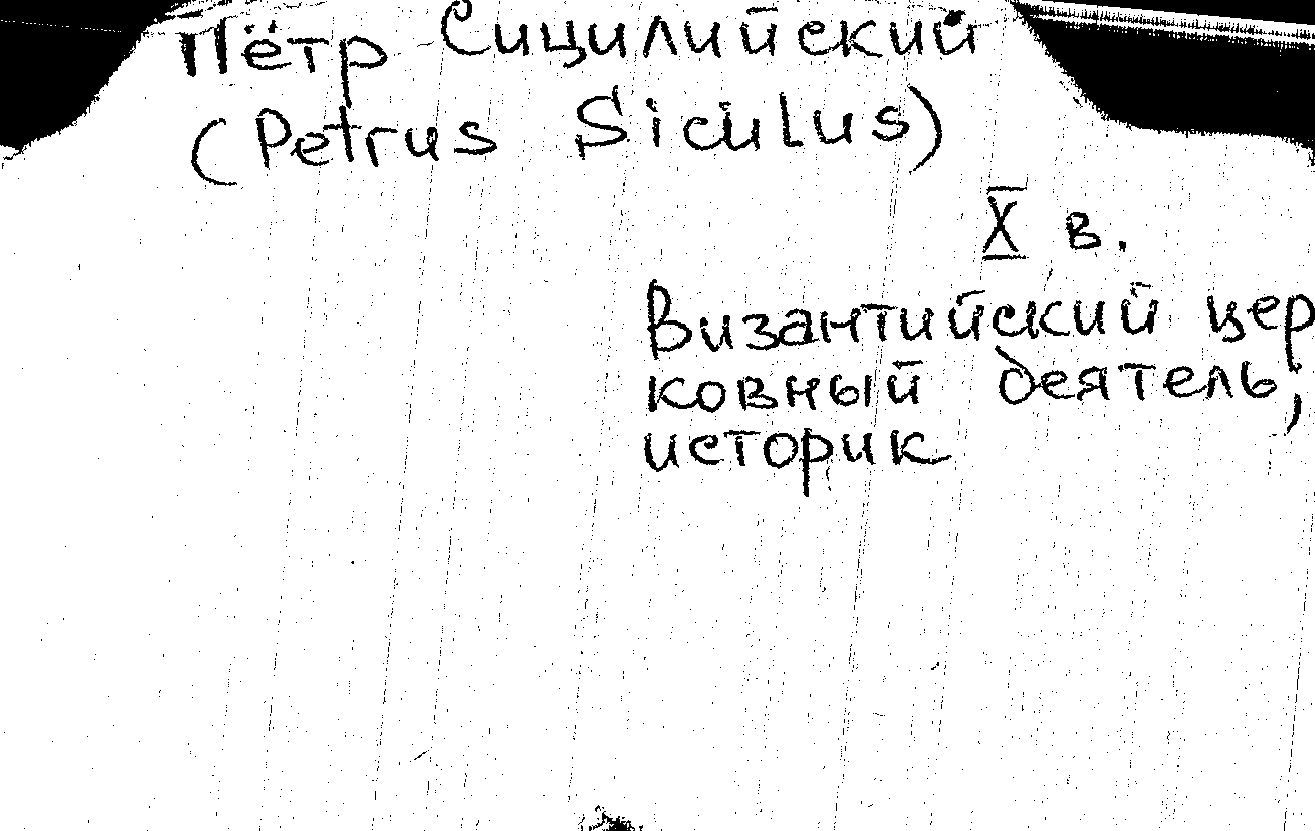 Пётр Сицилийский
(Petrus Siculus)
X в.
Византийский цер
ковный деятель,
историк